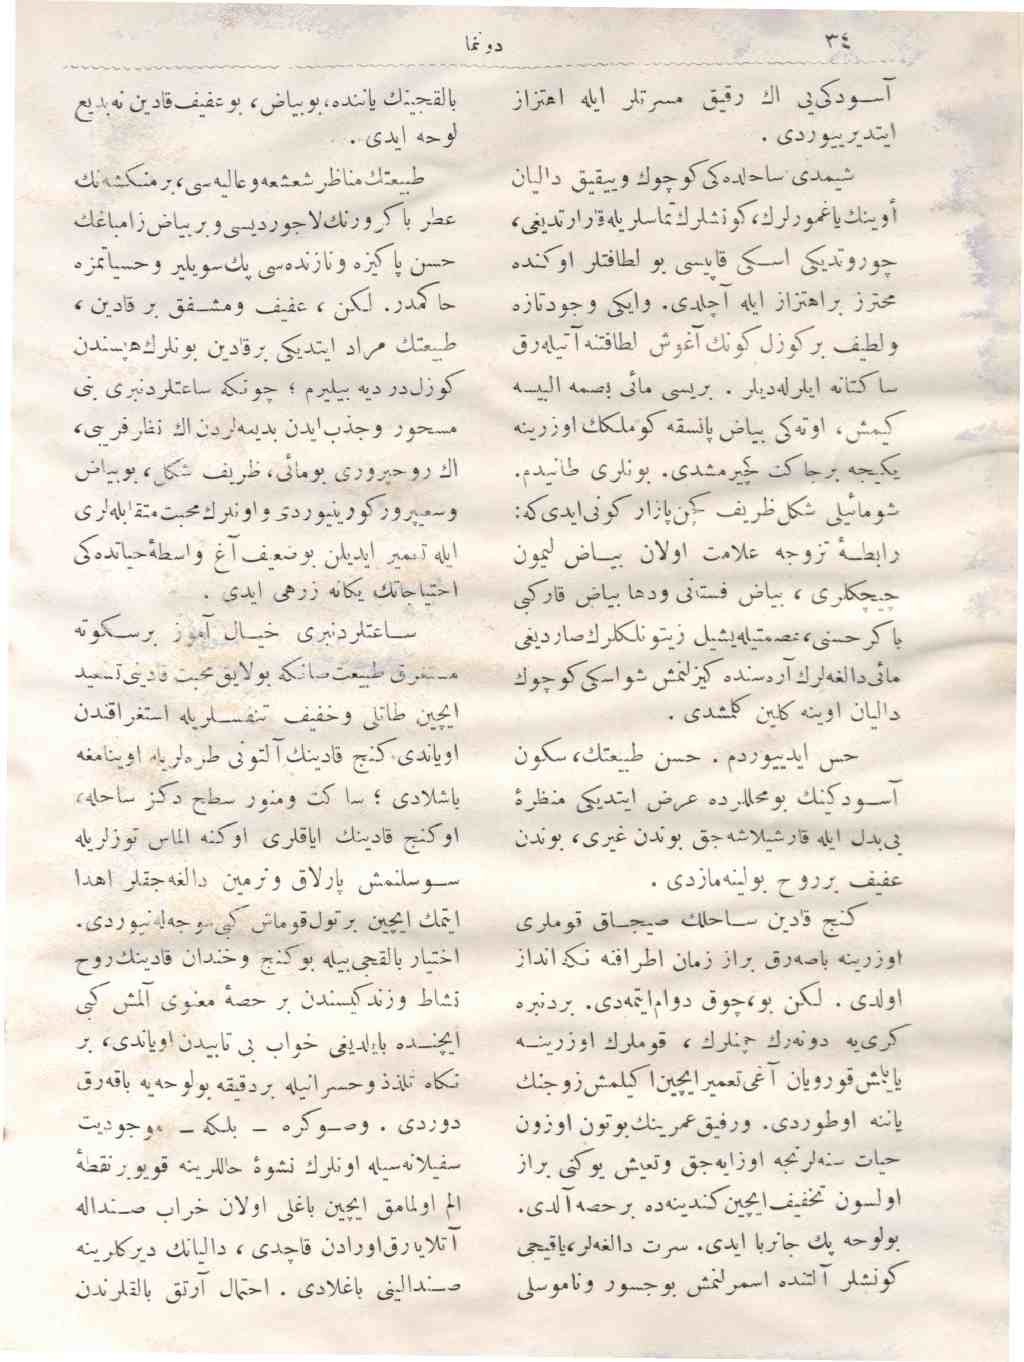 ٣٤
دونما
آسودكی‌یی اك رقیق مسرتلر ایله اهتزاز
ایتدیرییوردی .
شیمدی ساحلده‌كی كوچوك وییقیق دالیان
أوینك یاغمورلرك، كونشلرك تماسلریله قرارتدیغی،
چوروتدیكی اسكی قاپیسی بو لطافتلر اوكنده
محترز براهتزاز ایله آچلدی. وایكی وجود تازه
ولطیف بر كوزل كونك آغوش لطافتنه آتیله‌رق
ساكتانه ایلرله‌دیلر . بریسی مائی بصمه البیسه
كیمش، اوته‌كی بیاض پانسقه كوملكك اوزرینه
یكیجه برجاكت كچیرمشدی. بونلری طانیدم.
شومائیلی شكل ظریف كچن پازار كونی ایدی كه:
رابطۀ تزوجه علامت اولان بیاض لیمون
چیچكلری ، بیاض فستانی ودها بیاض قاركبی
باكر حسنی، عصمتیله یشیل زیتونلكلرك صاردیغی
مائی دالغه‌لرك آره‌سنده كیزلنمش شو اسكی كوچوك
دالیان اوینه كلین كلمشدی .
حس ایدییوردم . حسن طبیعتك، سكون
آسودكینك بومحللرده عرض ایتدیكی منظرۀ
بی‌بدل ایله قارشیلاشه‌جق بوندن غیری، بوندن
عفیف برروح بولینه‌مازدی .
كنج قادین ساحلك صیجاق قوملری
اوزرینه باصه‌رق براز زمان اطرافنه نكه‌انداز
اولدی . لكن بو، چوق دوام ایتمه‌دی. بردنبره
كری‌یه دونه‌رك چمنلرك ، قوملرك اوزرینه
یایلمش قورویان آغی تعمیر ایچین اكیلمش زوجنك
یاننه اوطوردی. ورفیق عمرینك بوتون اوزون
حیات سنه‌لرنجه اوزایه‌جق وتعیش یوكنی براز
اولسون تخفیف ایچین كندینه‌ده برحصه آلدی.
بولوحه پك جانربا ایدی. سرت دالغه‌لر، یاقیجی
كونشلر آلتنده اسمرلنمش بوجسور وناموسلی
بالقجینك یاننده، بوبیاض، بو عفیف قادین نه بدیع
لوحه ایدی . .
طبیعتك مناظر شعشعه وعالیه‌سی، بر منكشه‌نك
عطر باكر ورنك لاجوردیسی وبر بیاض زامباغك
حسن پاكیزه ونازنده‌سی پك سویلیر وحسیاتمزه
حاكمدر. لكن ، عفیف ومشفق بر قادین ،
طبیعتك مراد ایتدیكی برقادین بونلرك هپسندن
كوزل در دیه بیلیرم ؛ چونكه ساعتلردنبری بنی
مسحور وجذب ایدن بدیعه‌لردن اك نظرفریبی،
اك روحپروری بومائی، ظریف شكل، بوبیاض
وسعیپرور كورینیوردی واونلرك محبت متقابله‌لری
ایله تعمیر ایدیلن بوضعیف آغ واسطۀ حیاتده‌كی
احتیاجاتك یكانه زرهی ایدی .
ساعتلردنبری خیال آموز برسكوته
مستغرق طبیعت صانكه بولایق محبت قادینی تسعید
ایچین طاتلی وخفیف تنفسلریله استغراقندن
اویاندی. كنج قادینك آلتونی طره‌لریله اوینامغه
باشلادی ؛ ساكت ومنور سطح دكز ساحله،
اوكنج قادینك ایاقلری اوكنه الماس توزلریله
سوسلنمش پارلاق ونرمین دالغه‌جقلر اهدا
ایتمك ایچین برتول قوماش كبی موجه‌له‌نیوردی.
اختیار بالقجی بیله بو كنج وخندان قادینك روح
نشاط وزندكیسندن بر حصۀ معنوی آلمش كبی
ایچنده بایلدیغی خواب بی تابیدن اویاندی، بر
نكاه تلذذ وحسرانیله بردقیقه بولوحه‌یه باقه‌رق
دوردی . وصوكره ـ بلكه ـ موجودیت
سفیلانه‌سیله اونلرك نشوۀ حاللرینه قویوبر نقطۀ
الم اولمامق ایچین باغلی اولان خراب صنداله
آتلایارق اورادن قاچدی ، دالیانك دیركلرینه
صندالینی باغلادی . احتمال آرتق بالقلرندن